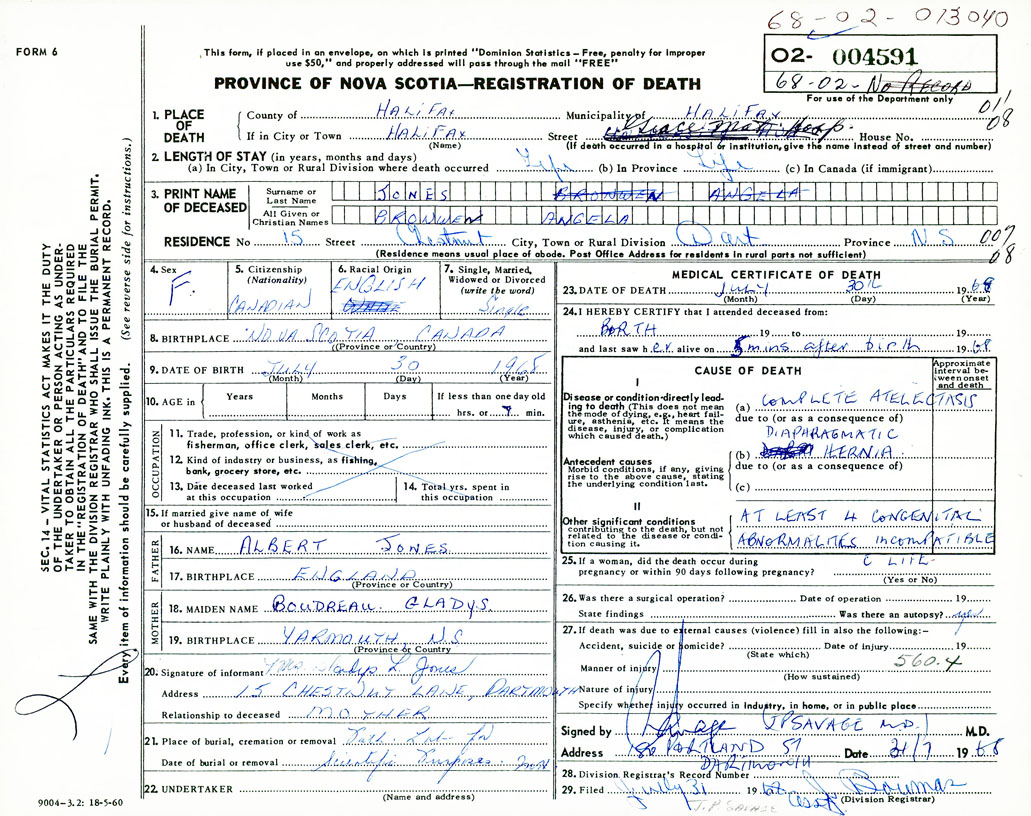 68-02-013040
FORM 6
This form, if placed in an envelope, on which is printed "Dominion Statistics – Free, penalty for improper
use $50," and properly addressed will pass through the mail "FREE"
PROVINCE OF NOVA SCOTIA—REGISTRATION OF DEATH
02- 004591
68-02- No RECORD
For use of the Department only
011
08
1. PLACE OF DEATH
County of HALIFAX Municipality of HALIFAX
If in City or Town HALIFAX Street Grace Mat. Hosp. House No.
(Name) (If death occurred in a hospital or institution, give the name instead of street and number)
2. LENGTH OF STAY (in years, months and days)
(a) In City, Town or Rural Division where death occurred Life (b) In Province Life (c) In Canada (if immigrant)
3. PRINT NAME OF DECEASED
Surname or Last Name JONES BRONWEN ANGELA
All Given or Christian Names BRONWEN ANGELA
RESIDENCE No 15 Street Chestnut City, Town or Rural Division Dart Province N.S.
(Residence means usual place of abode. Post Office Address for residents in rural parts not sufficient)
007
08
4. Sex F
5. Citizenship (Nationality) CANADIAN
6. Racial Origin ENGLISH WHITE
7. Single, Married, Widowed or Divorced (write the word) Single
8. BIRTHPLACE NOVA SCOTIA CANADA
(Province or Country)
9. DATE OF BIRTH JULY 30 1968
(Month) (Day) (Year)
10. AGE in Years Months Days If less than one day old
hrs. or 7 min.
OCCUPATION
11. Trade, profession, or kind of work as
fisherman, office clerk, sales clerk, etc.
12. Kind of industry or business, as fishing,
bank, grocery store, etc.
13. Date deceased last worked
at this occupation
14. Total yrs. spent in
this occupation
15. If married give name of wife
or husband of deceased
FATHER
16. NAME ALBERT JONES
17. BIRTHPLACE ENGLAND
(Province or Country)
MOTHER
18. MAIDEN NAME BOUDREAU GLADYS
19. BIRTHPLACE YARMOUTH, N.S
(Province or Country)
20. Signature of informant Mrs. Gladys L Jones
Address 15 CHESTNUT LANE, DARTMOUTH
Relationship to deceased MOTHER
21. Place of burial, cremation or removal Path. Lab
Date of burial or removal Scientific Purposes
22. UNDERTAKER
(Name and address)
9004–3.2: 18-5-60
MEDICAL CERTIFICATE OF DEATH
23. DATE OF DEATH JULY 30th 1968
(Month) (Day) (Year)
24. I HEREBY CERTIFY that I attended deceased from:
BIRTH 19 to 19
and last saw her alive on 5 mins after birth 1968
CAUSE OF DEATH
Approximate interval between onset and death
I
Disease or condition directly leading to death (This does not mean the mode of dying, e.g., heart failure, asthenia, etc. It means the disease, injury, or complication which caused death.)
(a) COMPLETE ATELECTASIS
due to (or as a consequence of)
DIAPHRAGMATIC
(b) HERNIA
due to (or as a consequence of)
(c)
Antecedent causes
Morbid conditions, if any, giving rise to the above cause, stating the underlying condition last.
II
Other significant conditions contributing to the death, but not related to the disease or condition causing it.
AT LEAST 4 CONGENITAL
ABNORMALITES INCOMPATIBLE
C LIFE
25. If a woman, did the death occur during
pregnancy or within 90 days following pregnancy?
(Yes or No)
26. Was there a surgical operation? Date of operation 19
State findings Was there an autopsy? yes
27. If death was due to external causes (violence) fill in also the following:–
Accident, suicide or homicide? Date of injury 19
(State which)
Manner of injury 560.4
(How sustained)
Nature of injury
Specify whether injury occurred in Industry, in home, or in public place
Signed by Savage (JPSAVAGE M.D.) M.D.
Address PORTLAND ST Date 31/7 1968
DARTMOUTH
28. Division Registrar's Record Number
29. Filed July 31 1968 Bowmar
(Division Registrar)
J.P. SAVAGE
SEC. 14 – VITAL STATISTICS ACT MAKES IT THE DUTY
OF THE UNDERTAKER OR PERSON ACTING AS UNDER-
TAKER TO OBTAIN ALL THE PARTICULARS REQUIRED
IN THE "REGISTRATION OF DEATH" AND TO FILE THE
SAME WITH THE DIVISION REGISTRAR WHO SHALL ISSUE THE BURIAL PERMIT.
WRITE PLAINLY WITH UNFADING INK. THIS IS A PERMANENT RECORD.
Every item of information should be carefully supplied. (See reverse side for instructions.)